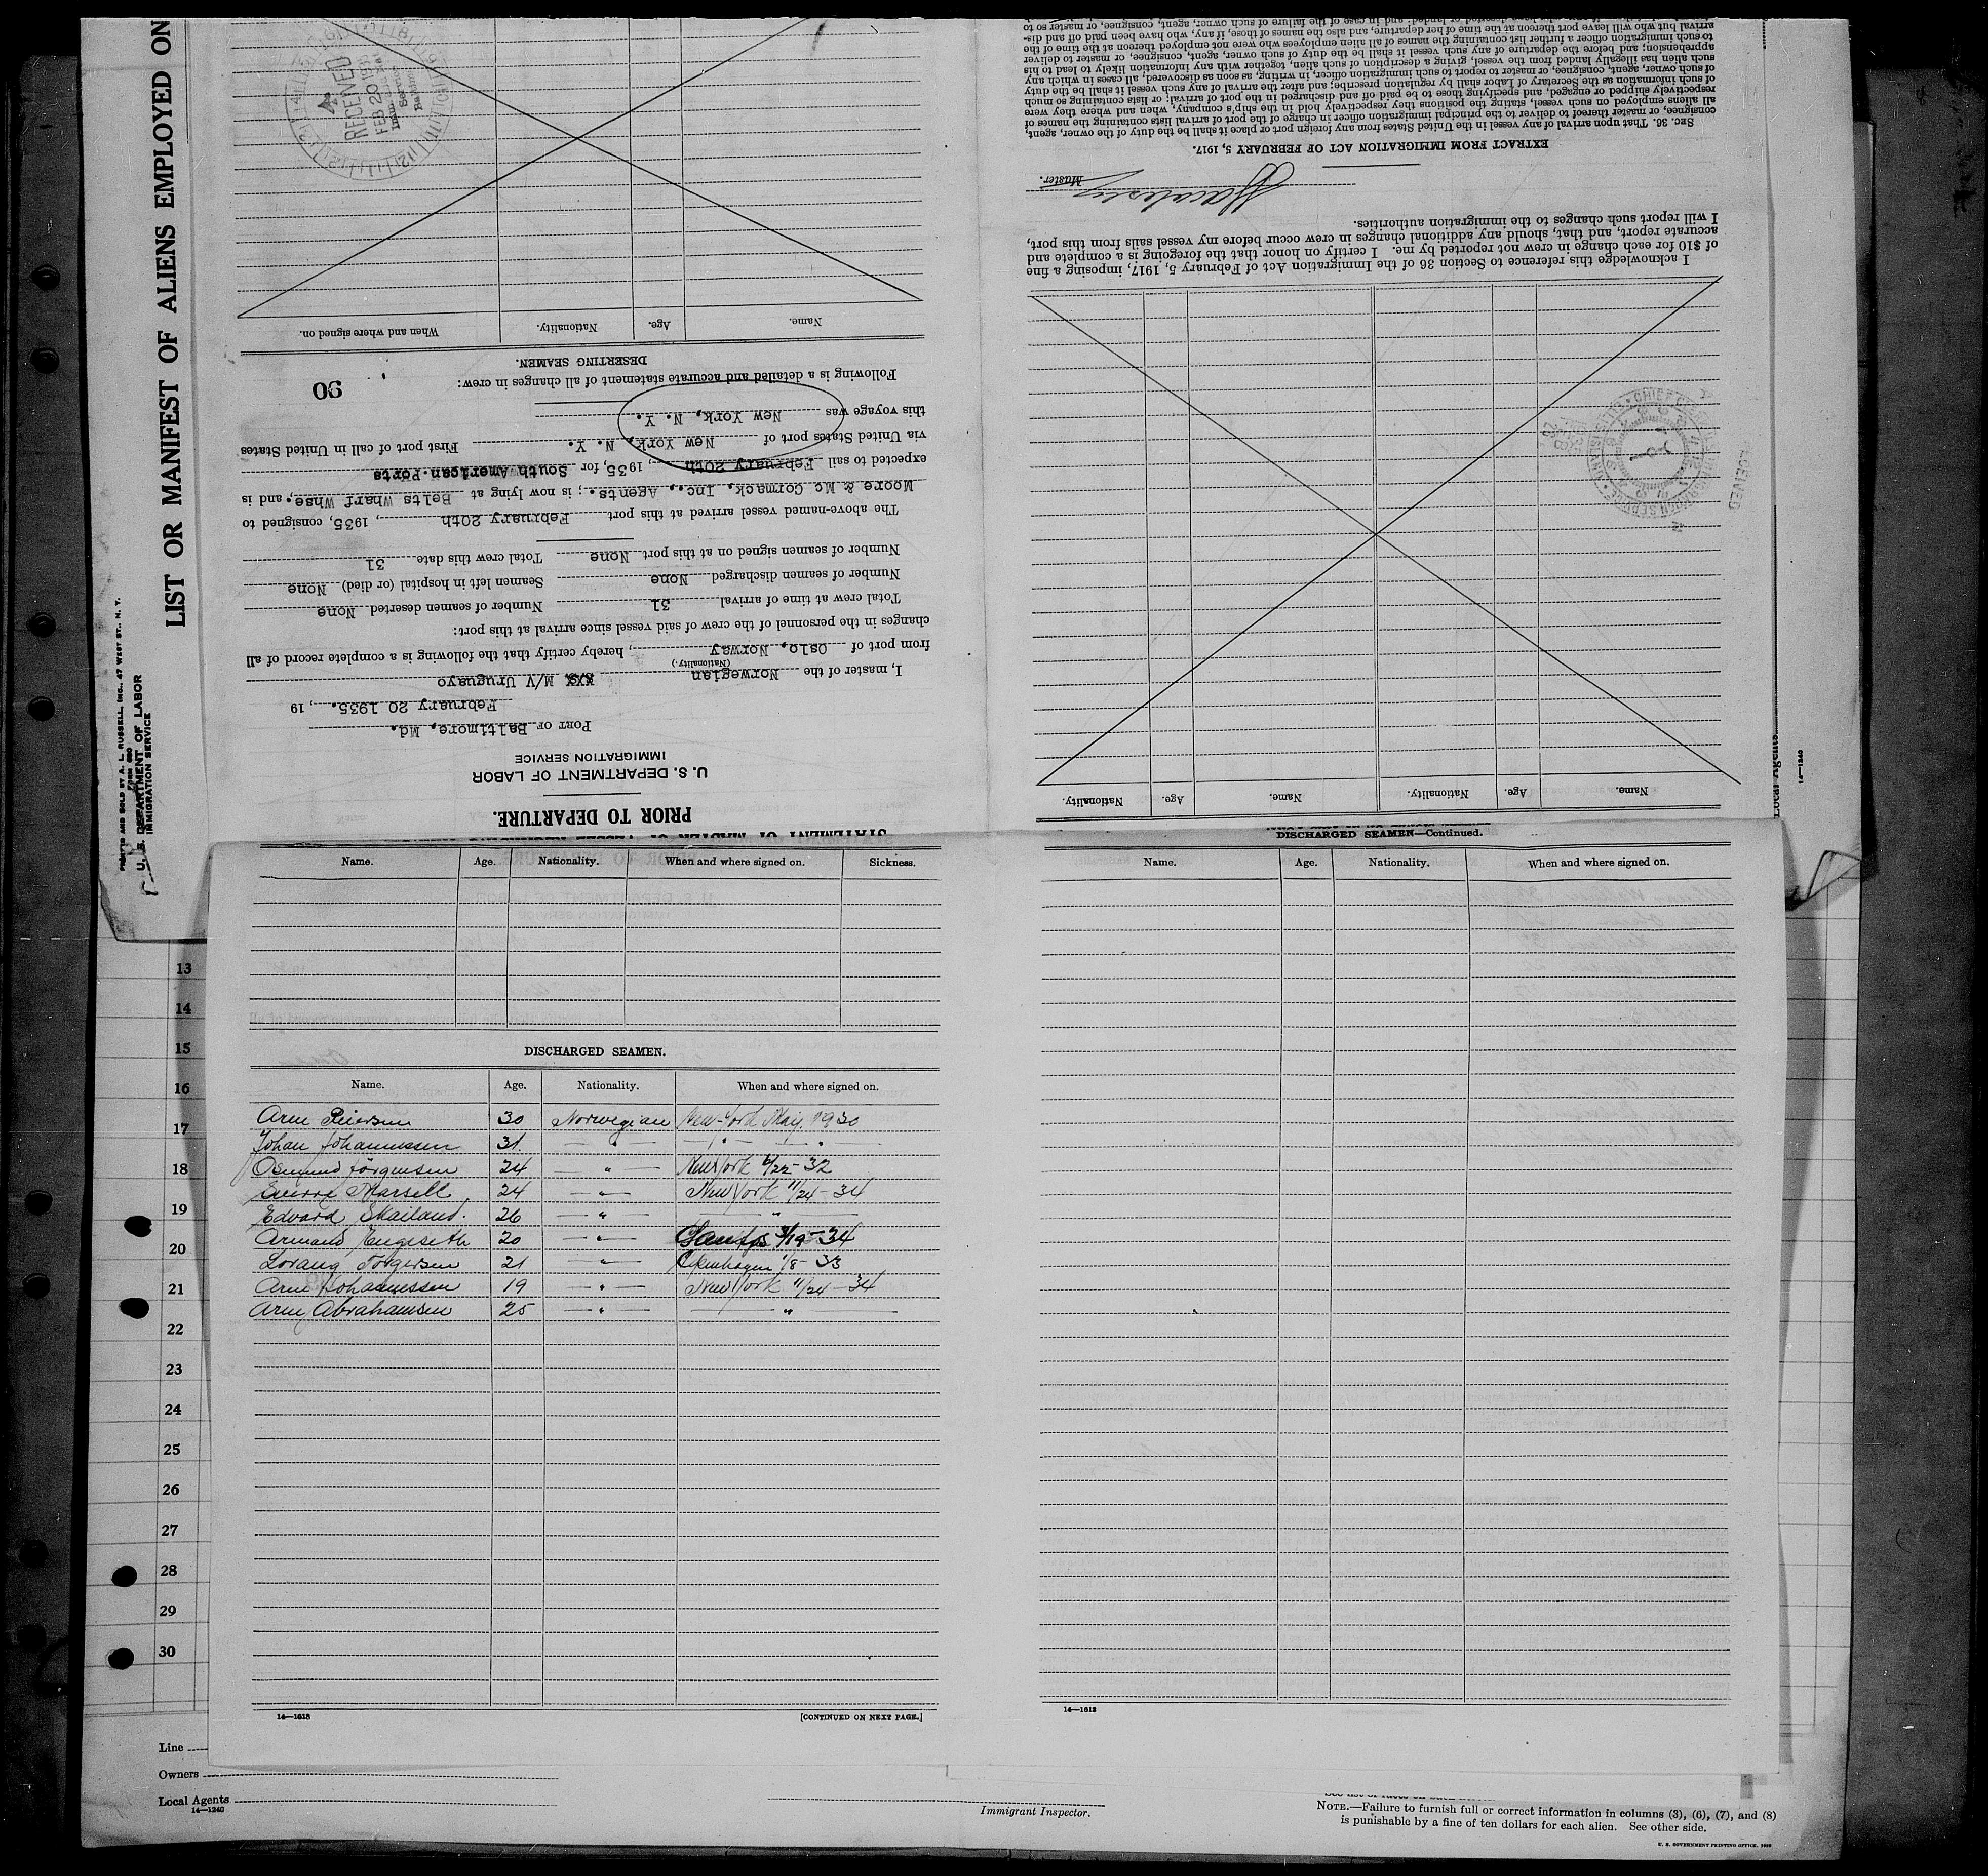 LIST OR MANIFEST OF ALIENS EMPLOYED ON
PRINTED AND SOLD BY A. L. RUSSELL, INC., 47 WEST ST., N. Y.
FORM 680
U. S. DEPARTMENT OF LABOR
IMMIGRATION SERVICE
PRIOR TO DEPARTURE.
U. S. DEPARTMENT OF LABOR
IMMIGRATION SERVICE
PORT OF Baltimore, Md.
February 20 1935. , 19
I, master of the Norwegian M/V Uruguayo
(Nationality.)
from port of Oslo, Norway , hereby certify that the following is a complete record of all
changes in the personnel of the crew of said vessel since arrival at this port:
Total crew at time of arrival 31 Number of seamen deserted None
Number of seamen discharged None Seamen left in hospital (or died) None
Number of seamen signed on at this port None Total crew this date 31
The above-named vessel arrived at this port February 20th , 1935, consigned to
Moore & Mc Cormack, Inc., Agents. ; is now lying at Belts Wharf Whse. , and is
expected to sail February 20th , 1935, for South American Ports
via United States port of New York, N. Y. First port of call in United States
this voyage was New York, N. Y.
Following is a detailed and accurate statement of all changes in crew:
90
DESERTING SEAMEN.
Name. Age. Nationality. When and where signed on.
RECEIVED
FEB 20 1935
Name. Age. Nationality. Name. Age. Nationality.
I acknowledge this reference to Section 36 of the Immigration Act of February 5, 1917, imposing a fine
of $10 for each change in crew not reported by me. I certify on honor that the foregoing is a complete and
accurate report, and that, should any additional changes in crew occur before my vessel sails from this port,
I will report such changes to the immigration authorities.
Master.
EXTRACT FROM IMMIGRATION ACT OF FEBRUARY 5, 1917.
SEC. 36. That upon arrival of any vessel in the United States from any foreign port or place it shall be the duty of the owner, agent,
consignee, or master thereof to deliver to the principal immigration officer in charge of the port of arrival lists containing the names of
all aliens employed on such vessel, stating the positions they respectively hold in the ship's company, when and where they were
respectively shipped or engaged, and specifying those to be paid off and discharged in the port of arrival; or lists containing so much
of such information as the Secretary of Labor shall by regulation prescribe; and after the arrival of any such vessel it shall be the duty
of such owner, agent, consignee, or master to report to such immigration officer, in writing, as soon as discovered, all cases in which any
such alien has illegally landed from the vessel, giving a description of such alien, together with any information likely to lead to his
apprehension; and before the departure of any such vessel it shall be the duty of such owner, agent, consignee, or master to deliver
to such immigration officer a further list containing the names of all alien employees who were not employed thereon at the time of the
arrival but who will leave port thereon at the time of her departure, and also the names of those, if any, who have been paid off and dis-
RECEIVED
Local Agents
14—1240
Name. Age. Nationality. When and where signed on. Sickness.
DISCHARGED SEAMEN.
Name. Age. Nationality. When and where signed on.
Arne Petersen 30 Norwegian New-York May 1930
Johan Johannessen 31. — " — — " — " —
Osmund Jörgensen 24 — " — New York 6/22-32
Sverre Marsell 24 — " — New York 11/24-34
Edvard Skailand. 26 — " — — " —
Armand Engeseth 20 — " — Santos 3/19-34
Lorang Torgersen 21 — " — Copenhagen 1/8-33
Arne Johannessen 19 — " — New York 11/24-34
Arne Abrahamsen 25 — " — — " —
14—1613
[CONTINUED ON NEXT PAGE.]
DISCHARGED SEAMEN—Continued.
Name. Age. Nationality. When and where signed on.
14—1613
13
14
15
16
17
18
19
20
21
22
23
24
25
26
27
28
29
30
Line
Owners
Local Agents
14—1240
Immigrant Inspector.
NOTE.—Failure to furnish full or correct information in columns (3), (6), (7), and (8)
is punishable by a fine of ten dollars for each alien. See other side.
U. S. GOVERNMENT PRINTING OFFICE